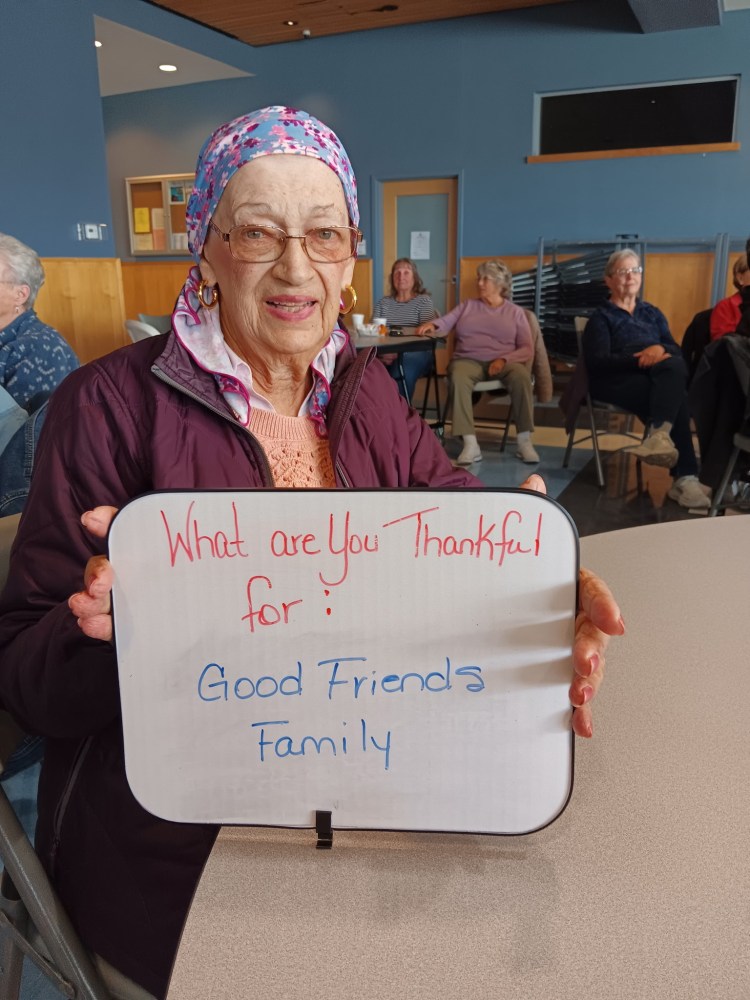 What are You Thankful
for:
Good Friends
Family